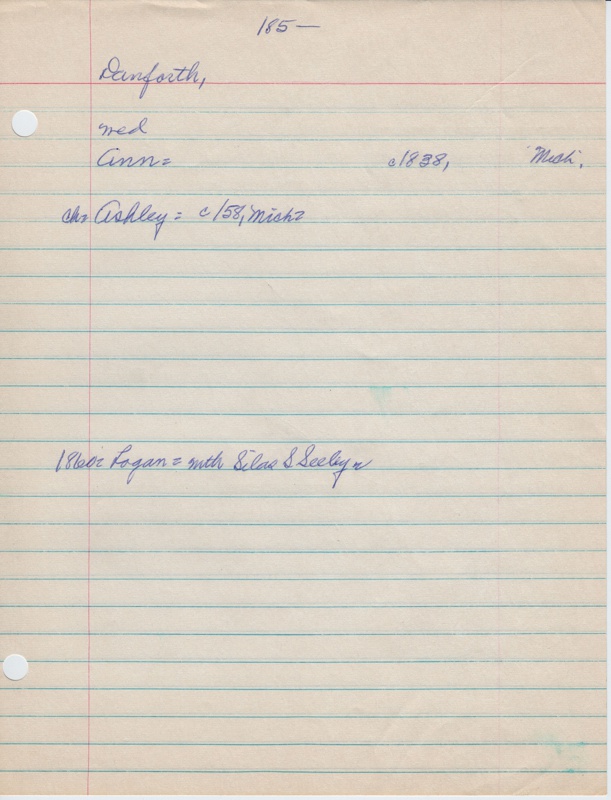 185—
Danforth,
med
Ann= c1838, Mich.
ch= Ashley= c/58, Mich=
1860= Logan= with Silas S Seeley